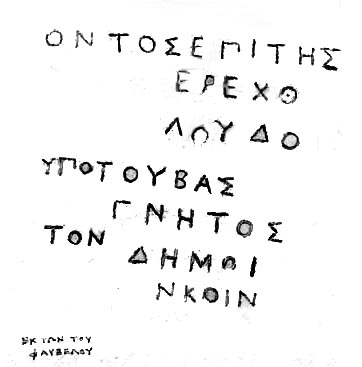 ΟΝΤΟΣΕΠΙΤΗΣ
ΕΡΕΧΟ
ΛΟΥΔΟ
ΥΠΟΤΟΥΒΑΣ
ΓΝΗΤΟΣ
ΤΟΝ ΔΗΜΟΙ
ΝΚΟΙΝ
ΕΚ ΤΩΝ ΤΟΥ
ΦΑΥΒΕΛΟΥ